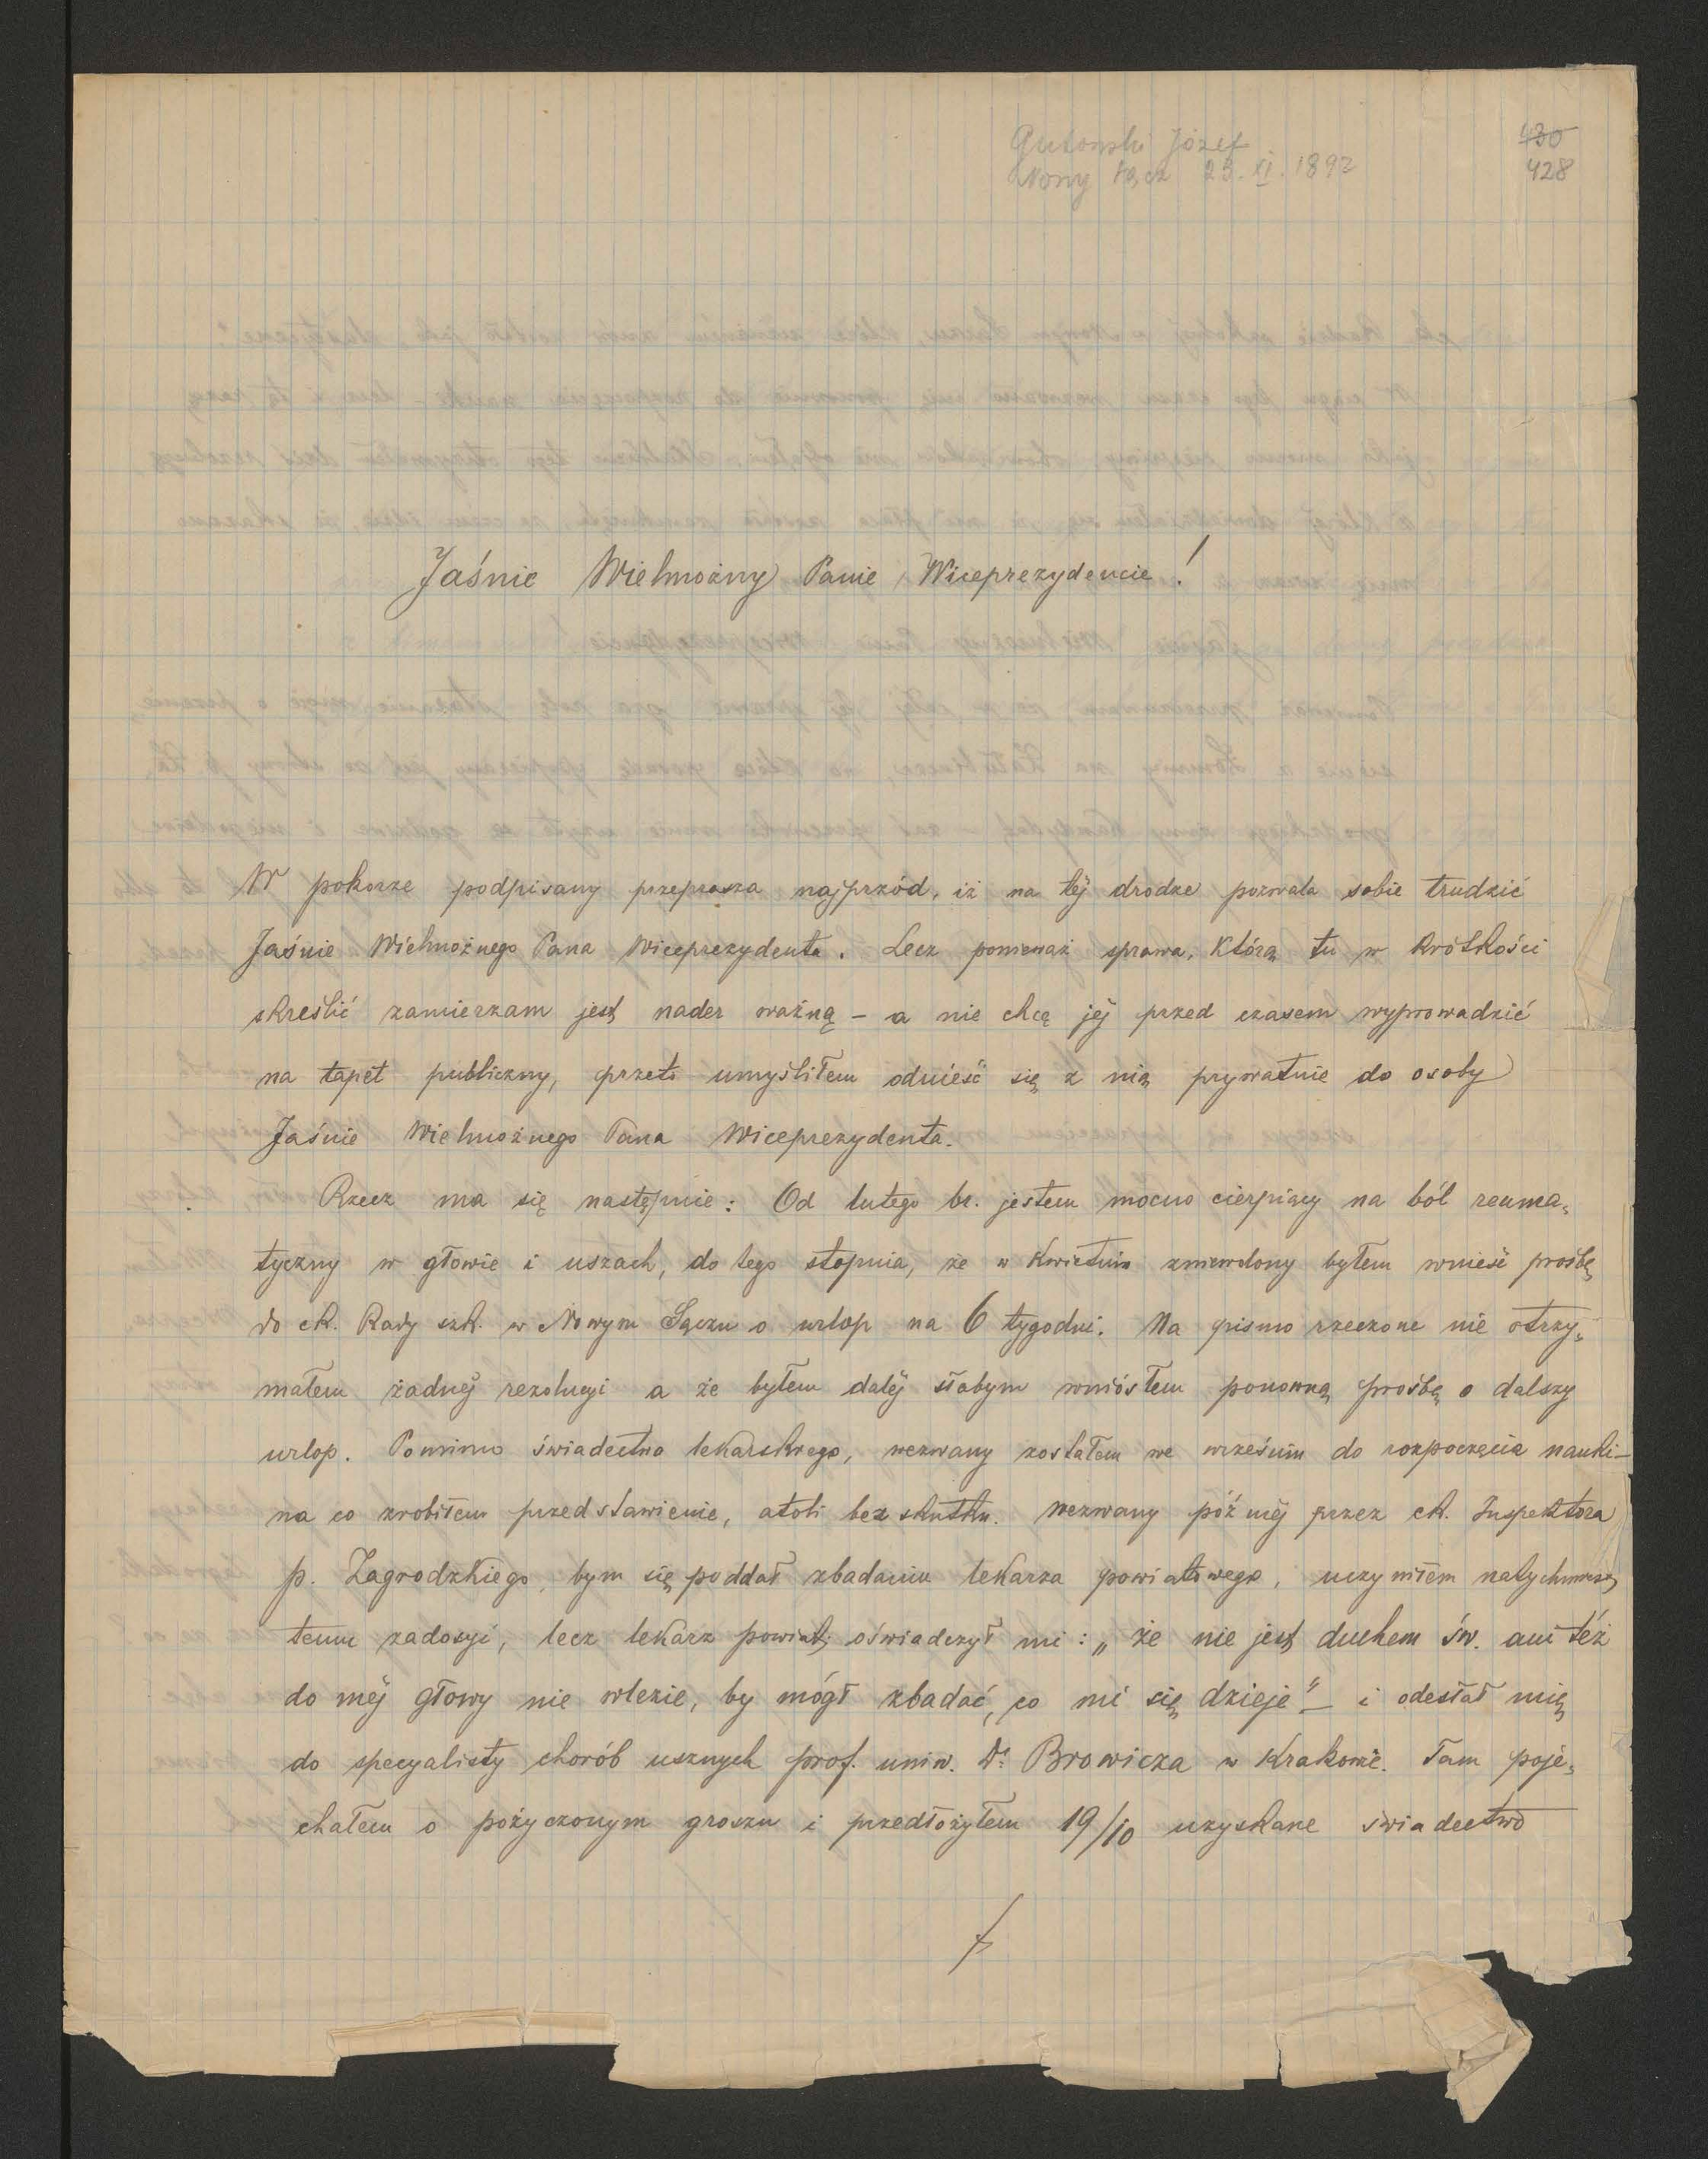 Gutowski Józef
Nowy Sącz 23. XI. 1892
430
428
Jaśnie Wielmożny Panie Wiceprezydencie!
W pokorze podpisany przeprasza najprzód, iż na téj drodze pozwala sobie trudzić
Jaśnie Wielmożnego Pana Wiceprezydenta. Lecz ponieważ sprawa, którą tu w krótkości
skreślić zamierzam jest nader ważną – a nie chcę jéj przed czasem wyprowadzić
na tapet publiczny, przeto umyśliłem odnieść się z nią prywatnie do osoby
Jaśnie Wielmożnego Pana Wiceprezydenta.
Rzecz ma się następnie: Od lutego br. jestem mocno cierpiący na ból reuma-
tyczny w głowie i uszach, do tego stopnia, że w kwietniu zniewolony byłem wnieść prośbę
do ck. Rady szk. w Nowym Sączu o urlop na 6 tygodni. Na pismo rzeczone nie otrzy-
małem żadnéj rezolucyi a że byłem daléj słabym wniósłem ponowną prośbę o dalszy
urlop. Pomimo świadectwa lekarskiego, wezwany zostałem we wrześniu do rozpoczęcia nauki –
na co zrobiłem przedstawienie, atoli bez skutku. Wezwany późniéj przez ck. Inspektora
p. Zagrodzkiego, bym się poddał zbadaniu lekarza powiatowego, uczyniłem natychmiast
temu zadosyć, lecz lekarz powiat. oświadczył mi: „że nie jest duchem św. ani téż
do méj głowy nie wlezie, by mógł zbadać, co mi się dzieje" – i odesłał mię
do specyalisty chorób usznych prof. uniw. Dr. Browicza w Krakowie. Tam poje-
chałem o pożyczonym groszu i przedłożyłem 19/10 uzyskane świadectwo